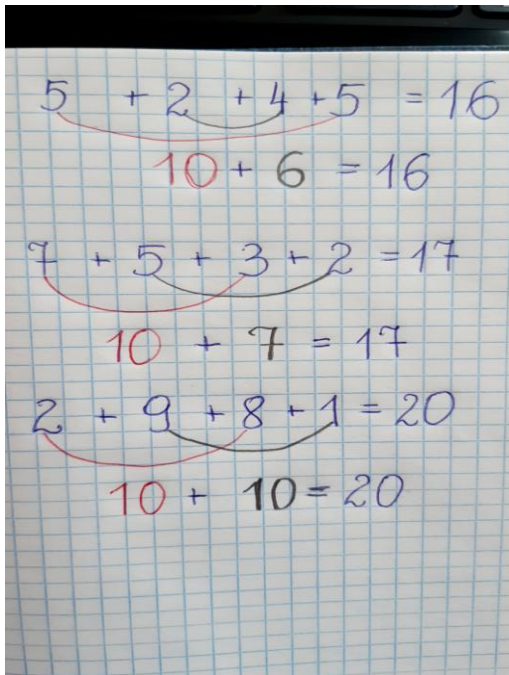 5 + 2 + 4 + 5 = 16
10 + 6 = 16
7 + 5 + 3 + 2 = 17
10 + 7 = 17
2 + 9 + 8 + 1 = 20
10 + 10 = 20